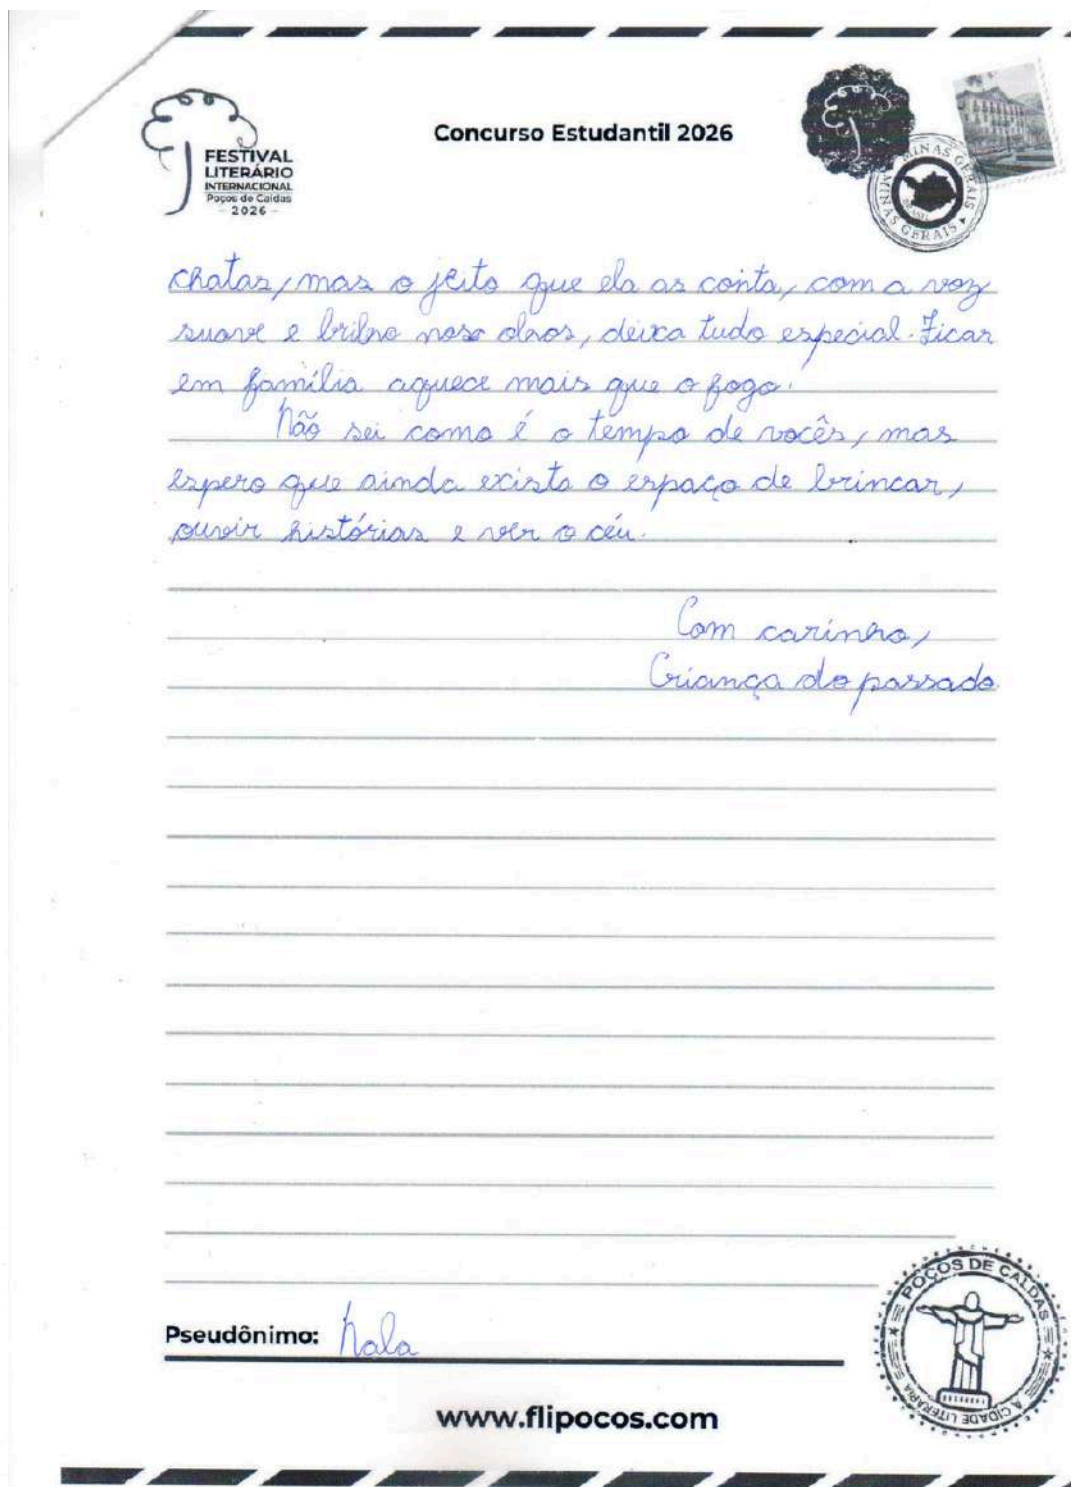 FESTIVAL
LITERÁRIO
INTERNACIONAL
Poços de Caldas
- 2026 -
Concurso Estudantil 2026
MINAS GERAIS
MINAS GERAIS
BRASIL
chatas, mas o jeito que ela as conta, com a voz
suave e brilho nos olhos, deixa tudo especial. Ficar
em família aquece mais que o fogo.
Não sei como é o tempo de vocês, mas
espero que ainda exista o espaço de brincar,
ouvir histórias e ver o céu.
Com carinho,
Criança do passado
Pseudônimo: Nala
POÇOS DE CALDAS
A CIDADE LITERÁRIA
www.flipocos.com